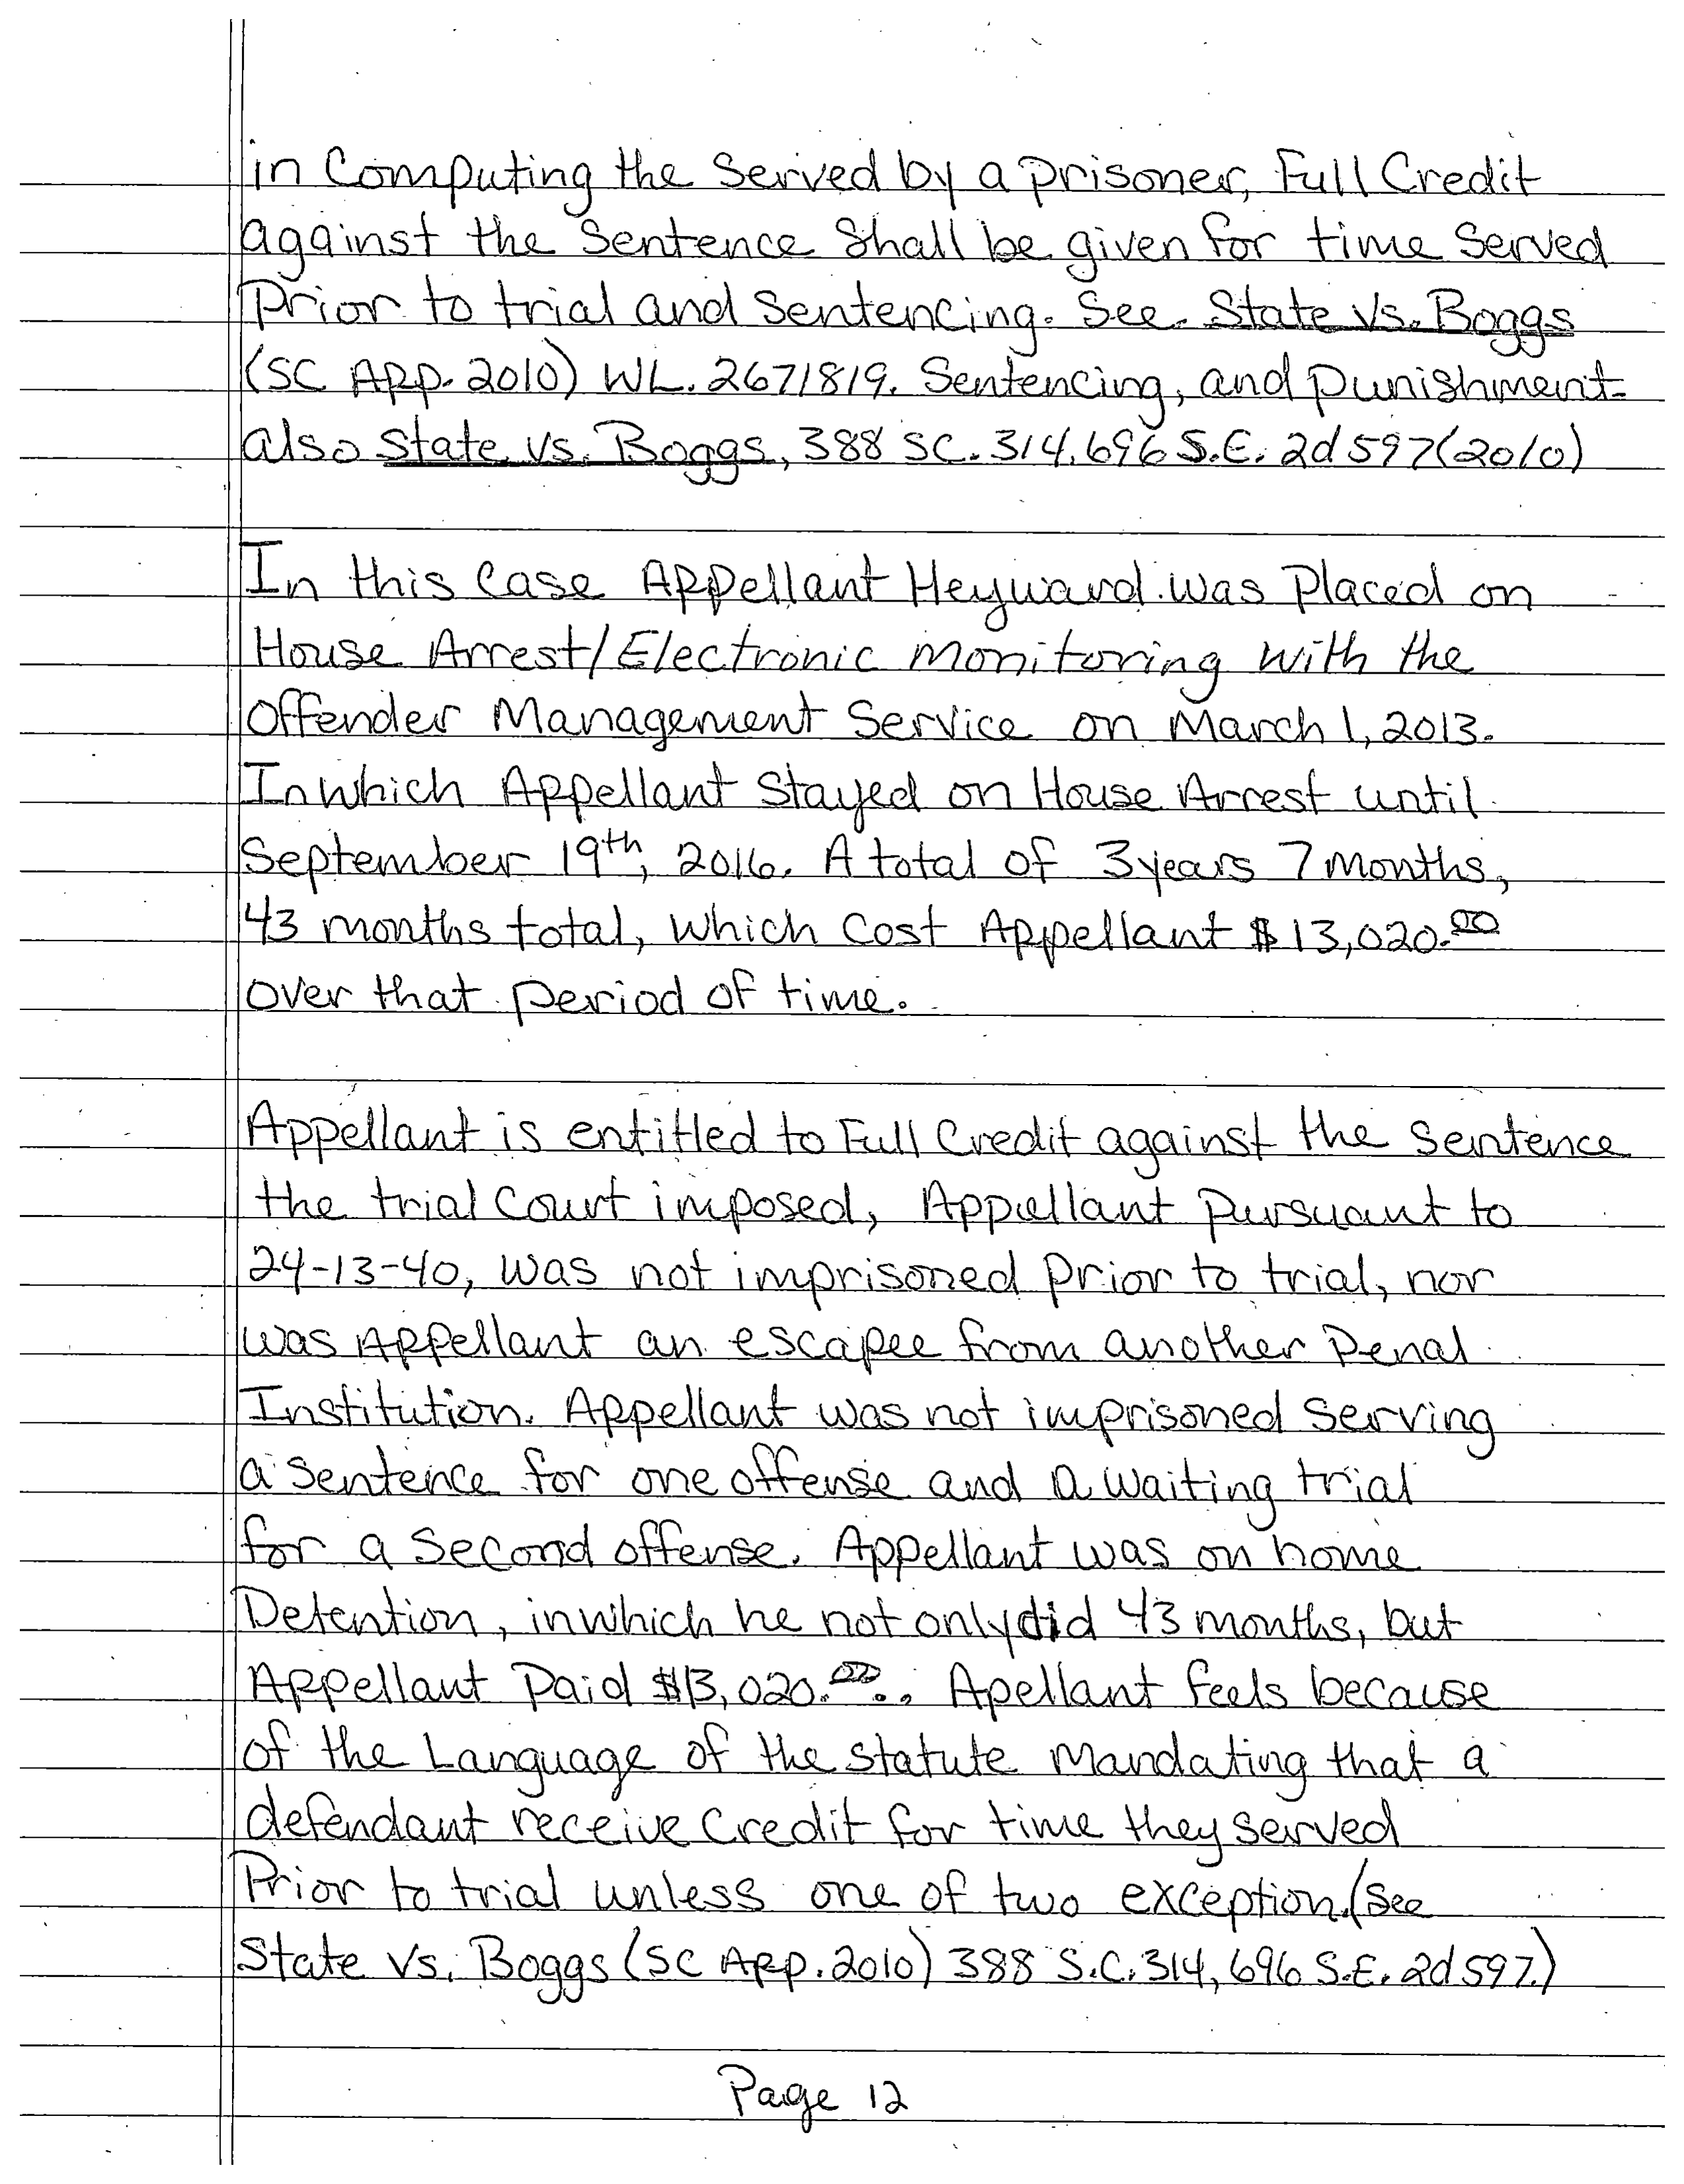 in Computing the Served by a prisoner, Full Credit
against the Sentence Shall be given for time Served
Prior to trial and Sentencing. See. State vs. Boggs
(SC App. 2010) WL. 2671819. Sentencing, and punishment.
also State vs. Boggs, 388 SC. 314, 696 S.E. 2d 597 (2010)
In this Case Appellant Heyward was Placed on
House Arrest/Electronic monitoring with the
Offender Management Service on March 1, 2013.
In which Appellant Stayed on House Arrest until
September 19th, 2016. A total of 3 years 7 months,
43 months total, which cost Appellant $13,020.00
over that period of time.
Appellant is entitled to Full Credit against the Sentence
the trial Court imposed, Appellant pursuant to
24-13-40, was not imprisoned prior to trial, nor
was Appellant an escapee from another Penal
Institution. Appellant was not imprisoned serving
a sentence for one offense and a waiting trial
for a second offense. Appellant was on home
Detention, inwhich he not only did 43 months, but
Appellant Paid $13,020.00.. Apellant feels because
of the Language of the statute Mandating that a
defendant receive Credit for time they served
Prior to trial unless one of two exception. (See
State Vs. Boggs (SC App. 2010) 388 S.C. 314, 696 S.E. 2d 597.)
Page 12